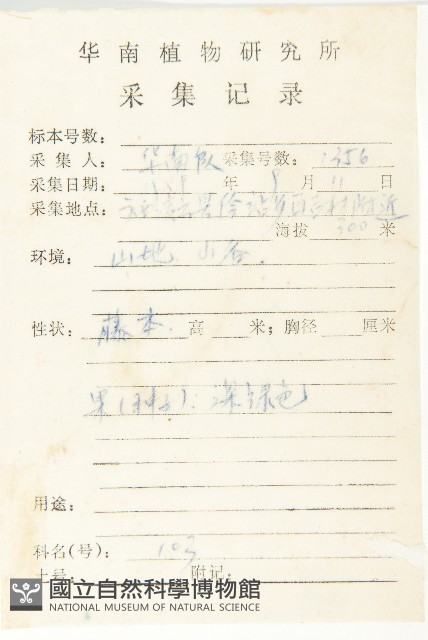 华南植物研究所
采集记录
标本号数:
采集人: 华南队 采集号数: 1356
采集日期: 年 月 11 日
采集地点: 附近
海拔 300 米
环境: 山地 山谷.
性状: 藤本. 高 米; 胸径 厘米
果(种子): 深绿色
用途:
科名(号): 103
土名: 附记:
國立自然科學博物館
NATIONAL MUSEUM OF NATURAL SCIENCE